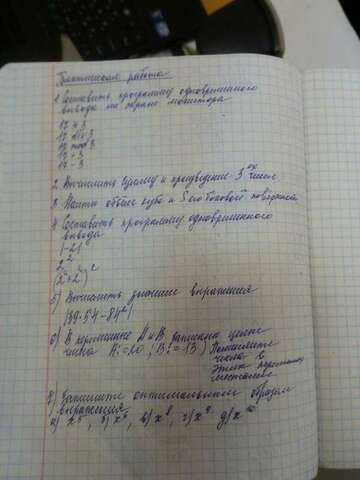 Практическая работа
1 Составить программу одновременного
вывода на экран монитора
17 * 3
17 div 3
17 mod 3
17 + 3
17 - 3
2. Вычислить сумму и произведение 3ох чисел
3. Найти объем куба и S его боковой поверхности
4 Составить программу одновременного
вывода
|-2|
2²
(2+2)²
5) Вычислить значение выражения
|89·54-84²|
6) В переменные A и B записаны целые
числа A:=20; B:=13) Поменяйте
числа в
этих переменных
местами
7) Запишите оптимальным образом
выражения
а) x⁵, б) x⁶, в) x⁸, г) x⁹ д) x¹⁰